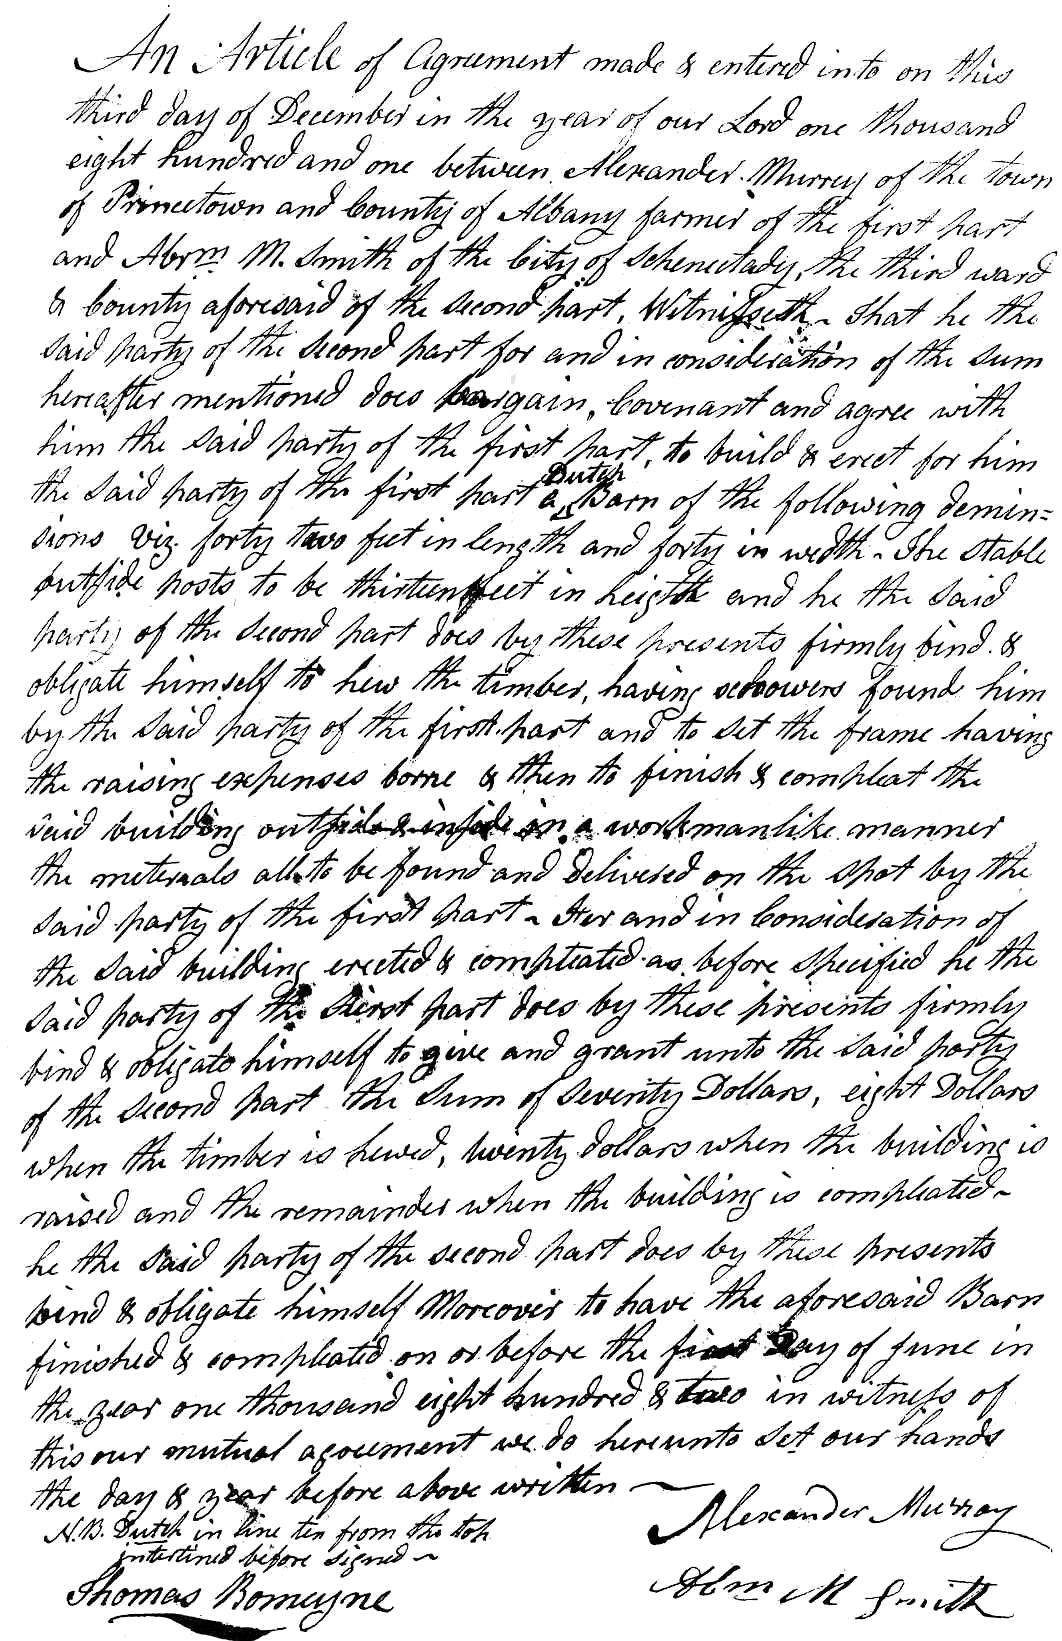 An Article of Agreement made & entered into on this
third day of December in the year of our Lord one thousand
eight hundred and one between Alexander Murrey of the town
of Princetown and County of Albany farmer of the first part
and Abrm M. Smith of the City of Schenectady, the third ward
& County aforesaid of the second part, Witnesseth - That he the
said party of the second part for and in consideration of the sum
hereafter mentioned does bargain, Covenant and agree with
him the said party of the first part, to build & erect for him
Dutch
the said party of the first part a Barn of the following demin=
sions viz. forty two feet in length and forty in wedth - The stable
outside posts to be thirteen feet in heighth and he the said
party of the second part does by these presents firmly bind &
obligate himself to hew the timber, having schowers found him
by the said party of the first part and to set the frame having
the raising expenses borne & then to finish & compleat the
said building outside & inside in a workmanlike manner
the meterials all to be found and Delivered on the spot by the
said party of the first part - and in Consideration of
the said building erected & compleated as before specified he the
said party of the first part does by these presents firmly
bind & obligate himself to give and grant unto the said party
of the second part the Sum of seventy Dollars, eight Dollars
when the timber is hewed, twenty dollars when the building is
raised and the remainder when the building is compleated -
he the said party of the second part does by these presents
bind & obligate himself Moreover to have the aforesaid Barn
finished & compleated on or before the first Day of June in
the year one thousand eight hundred & two in witness of
this our mutual agreement we do hereunto set our hands
the day & year before above written -
N.B. Dutch in line ten from the top
interlined before signed -
Alexander Murray
Thomas Romeyne
Abm M Smith